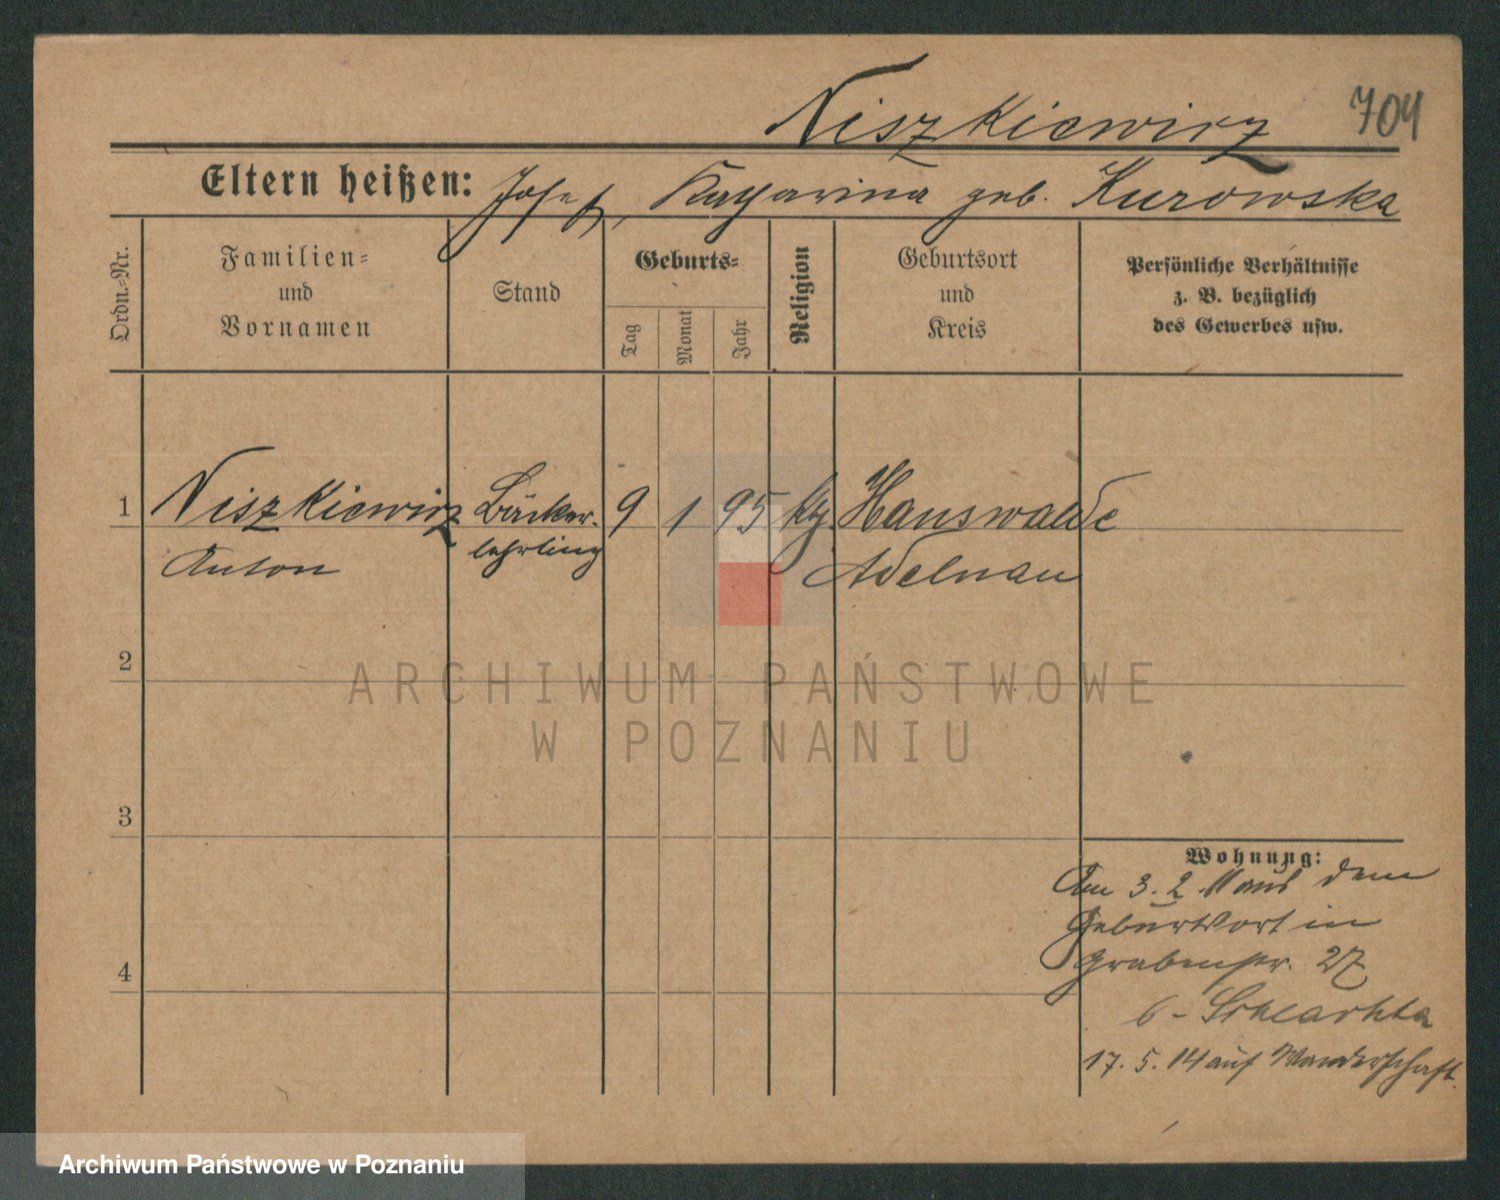 Niszkiewicz 704
Eltern heißen: Josef, Katharina geb. Kurowska
Ordn.-Nr.
Familien-
und
Vornamen
Stand
Geburts-
Tag
Monat
Jahr
Religion
Geburtsort
und
Kreis
Persönliche Verhältnisse
z. B. bezüglich
des Gewerbes usw.
1 Niszkiewicz Bäcker- 9 1 95 kth Hauswalde
Anton lehrling Adelnau
2
3
4
Wohnung:
Am 3. 2. 11 aus dem
Geburtsort in
Grabenstr. 27
b- Szlachta
17. 5. 14 auf Wanderschaft.
ARCHIWUM PAŃSTWOWE
W POZNANIU
Archiwum Państwowe w Poznaniu